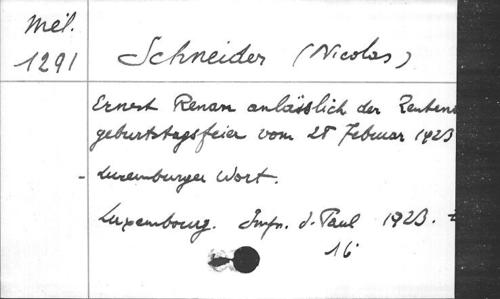 Mél.
1291
Schneider (Nicolas)
Ernest Renan anlässlich der Zentenar
geburtstagsfeier vom 28 Februar 1923
- Luxemburger Wort.
Luxembourg. Impr. S. Paul 1923.
16